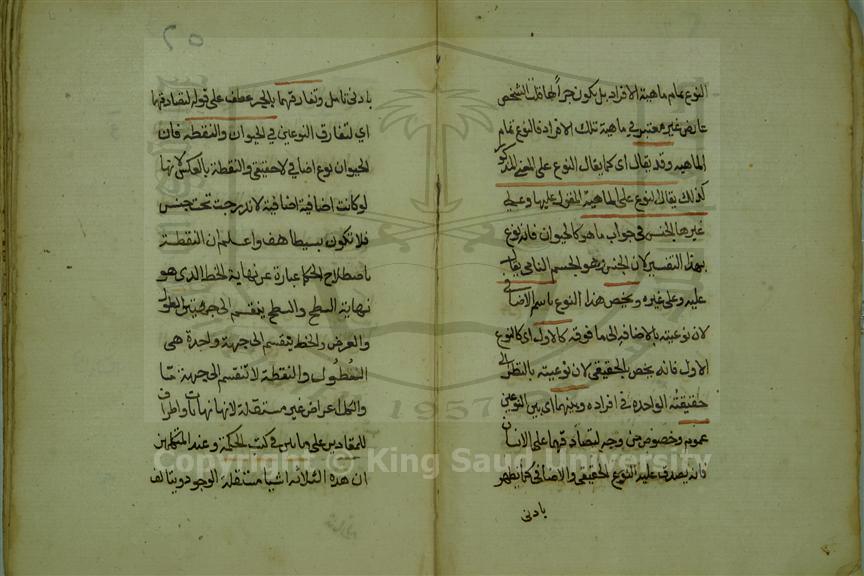 النوع تمام ماهية الافراد بل يكون جزأ لها فان الشخص
عارض غير معتبر في ماهية تلك الافراد فالنوع تمام
الماهيه وقد يقال اى كما يقال النوع على المعنى المذكور
كذلك يقال النوع على الماهية المقول عليها وعلى
غيرها الجنس في جواب ما هو كالحيوان فانه نوع
بهذا التفسير لان الجنس وهو الجسم النامى يقال
عليه وعلى غيره ويخص هذا النوع باسم الاضافى
لان نوعيته بالاضافه الى ما فوقه كالاول اى كالنوع
الاول فانه يخص بالحقيقى لان نوعيته بالنظر الى
حقيقته الواحده فى افراده وبينهما اى بين النوعين
عموم وخصوص من وجه لتصادقهما على الانسان
فانه يصدق عليه النوع الحقيقى والاضافى كما يظهر
بادنى
٥٢
بادنى تامل وتفارقهما بالجر عطف على قوله لتصادقهما
اى لتفارق النوعين في الحيوان والنقطة فان
الحيوان نوع اضافى لا حقيقى والنقطة بالعكس لانها
لو كانت اضافية اضافية لاندرجت تحت جنس
فلا تكون بسيطا هف واعلم ان النقطة
باصطلاح الحكما عبارة عن نهاية الخط الذى هو
نهاية السطح والسطح ينقسم الى جهتين الطول
والعرض والخط ينقسم الى جهة واحدة هى
الطول والنقطة لا تنقسم الى جهة ما
والكل اعراض غير مستقلة لانها نهايات واطراف
للمقادير على ما بين فى كتب الحكمة وعند المتكلمين
ان هذه الثلاثه اشيا مستقلة الوجود ويتالف
1957
Copyright © King Saud University